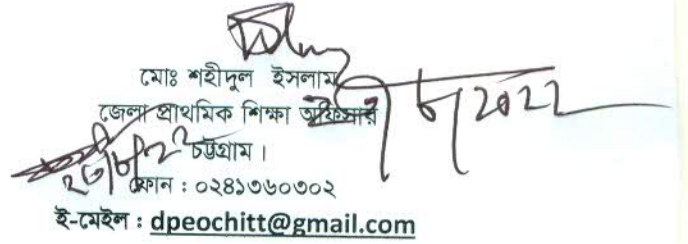 মোঃ শহীদুল ইসলাম
জেলা প্রাথমিক শিক্ষা অফিসার
চট্টগ্রাম।
ফোন : ০২৪১৩৬০৩০২
ই-মেইল : dpeochitt@gmail.com